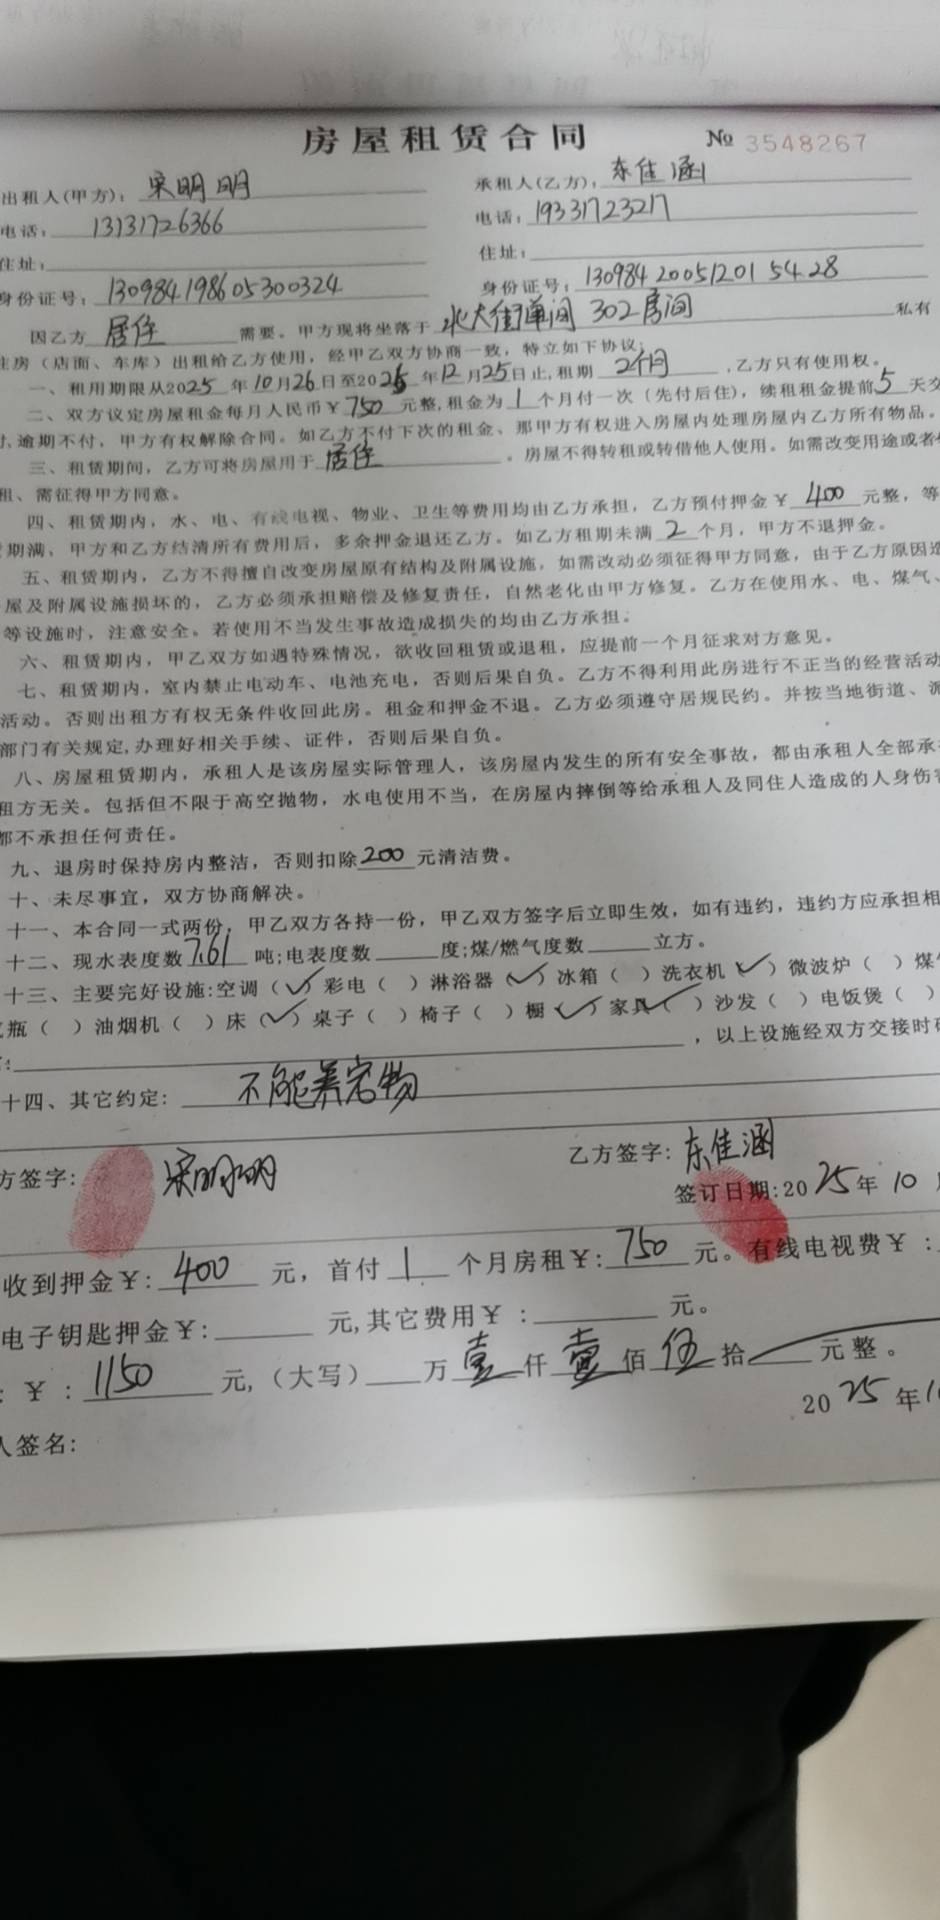 房屋租赁合同 № 3548267
出租人(甲方): 宋明明 承租人(乙方): 东佳涵
电话: 13131726366 电话: 19331723217
住址: 住址:
身份证号: 130984198605300324 身份证号: 130984200512015428
因乙方 居住 需要。甲方现将坐落于 单间 302房间 私有
住房（店面、车库）出租给乙方使用，经甲乙双方协商一致，特立如下协议:
一、租用期限从2025年10月26日至2025年12月25日止,租期 2个月 ,乙方只有使用权。
二、双方议定房屋租金每月人民币¥750元整,租金为1个月付一次（先付后住），续租租金提前5天交
付,逾期不付，甲方有权解除合同。如乙方不付下次的租金、那甲方有权进入房屋内处理房屋内乙方所有物品。
三、租赁期间，乙方可将房屋用于 居住 。房屋不得转租或转借他人使用。如需改变用途或者
租、需征得甲方同意。
四、租赁期内，水、电、有线电视、物业、卫生等费用均由乙方承担，乙方预付押金¥ 400 元整，等
期满，甲方和乙方结清所有费用后，多余押金退还乙方。如乙方租期未满 2 个月，甲方不退押金。
五、租赁期内，乙方不得擅自改变房屋原有结构及附属设施，如需改动必须征得甲方同意，由于乙方原因造
屋及附属设施损坏的，乙方必须承担赔偿及修复责任，自然老化由甲方修复。乙方在使用水、电、煤气、
等设施时，注意安全。若使用不当发生事故造成损失的均由乙方承担。
六、租赁期内，甲乙双方如遇特殊情况，欲收回租赁或退租，应提前一个月征求对方意见。
七、租赁期内，室内禁止电动车、电池充电，否则后果自负。乙方不得利用此房进行不正当的经营活动
活动。否则出租方有权无条件收回此房。租金和押金不退。乙方必须遵守居规民约。并按当地街道、派
部门有关规定,办理好相关手续、证件，否则后果自负。
八、房屋租赁期内，承租人是该房屋实际管理人，该房屋内发生的所有安全事故，都由承租人全部承
租方无关。包括但不限于高空抛物，水电使用不当，在房屋内摔倒等给承租人及同住人造成的人身伤害
都不承担任何责任。
九、退房时保持房内整洁，否则扣除200元清洁费。
十、未尽事宜，双方协商解决。
十一、本合同一式两份，甲乙双方各持一份，甲乙双方签字后立即生效，如有违约，违约方应承担相
十二、现水表度数7.61吨;电表度数 度;煤/燃气度数 立方。
十三、主要完好设施:空调（✓）彩电（ ）淋浴器（✓）冰箱（ ）洗衣机（✓）微波炉（ ）煤气
瓶（ ）油烟机（ ）床（✓）桌子（ ）椅子（ ）橱（✓）家具（✓）沙发（ ）电饭煲（ ）
，以上设施经双方交接时
十四、其它约定: 不能养宠物
方签字: 宋明明 乙方签字: 东佳涵
签订日期:2025年10
收到押金¥: 400 元，首付 1 个月房租¥: 750 元。有线电视费¥ :
电子钥匙押金¥: 元,其它费用¥ : 元。
: ¥ : 1150 元,（大写） 万 壹 仟 壹 佰 伍 拾 元整。
2025年
人签名: